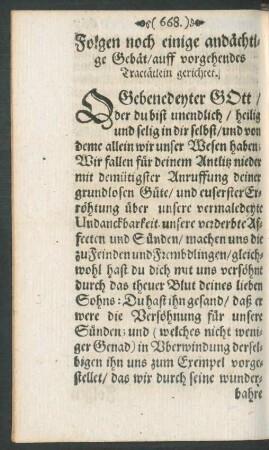 ( 668. )
Folgen noch einige andächti-
ge Gebät / auff vorgehendes
Tractätlein gerichtet.
O Gebenedeyter GOtt /
der du bist unendlich / heilig
und selig in dir selbst / und von
deme allein wir unser Wesen haben:
Wir fallen für deinem Antlitz nieder
mit demütigster Anruffung deiner
grundlosen Güte / und eusserster Er-
röhtung über unsere vermaledeyte
Undanckbarkeit. unsere verderbte Af-
fecten und Sünden / machen uns dir
zu Feinden und Frembdlingen / gleich-
wohl hast du dich mit uns versöhnt
durch das theuer Blut deines lieben
Sohns: Du hast ihn gesand / daß er
were die Versöhnung für unsere
Sünden: und ( welches nicht weni-
ger Genad ) in Uberwindung dersel-
bigen ihn uns zum Exempel vorge-
stellet / das wir durch seine wunder-
bahre